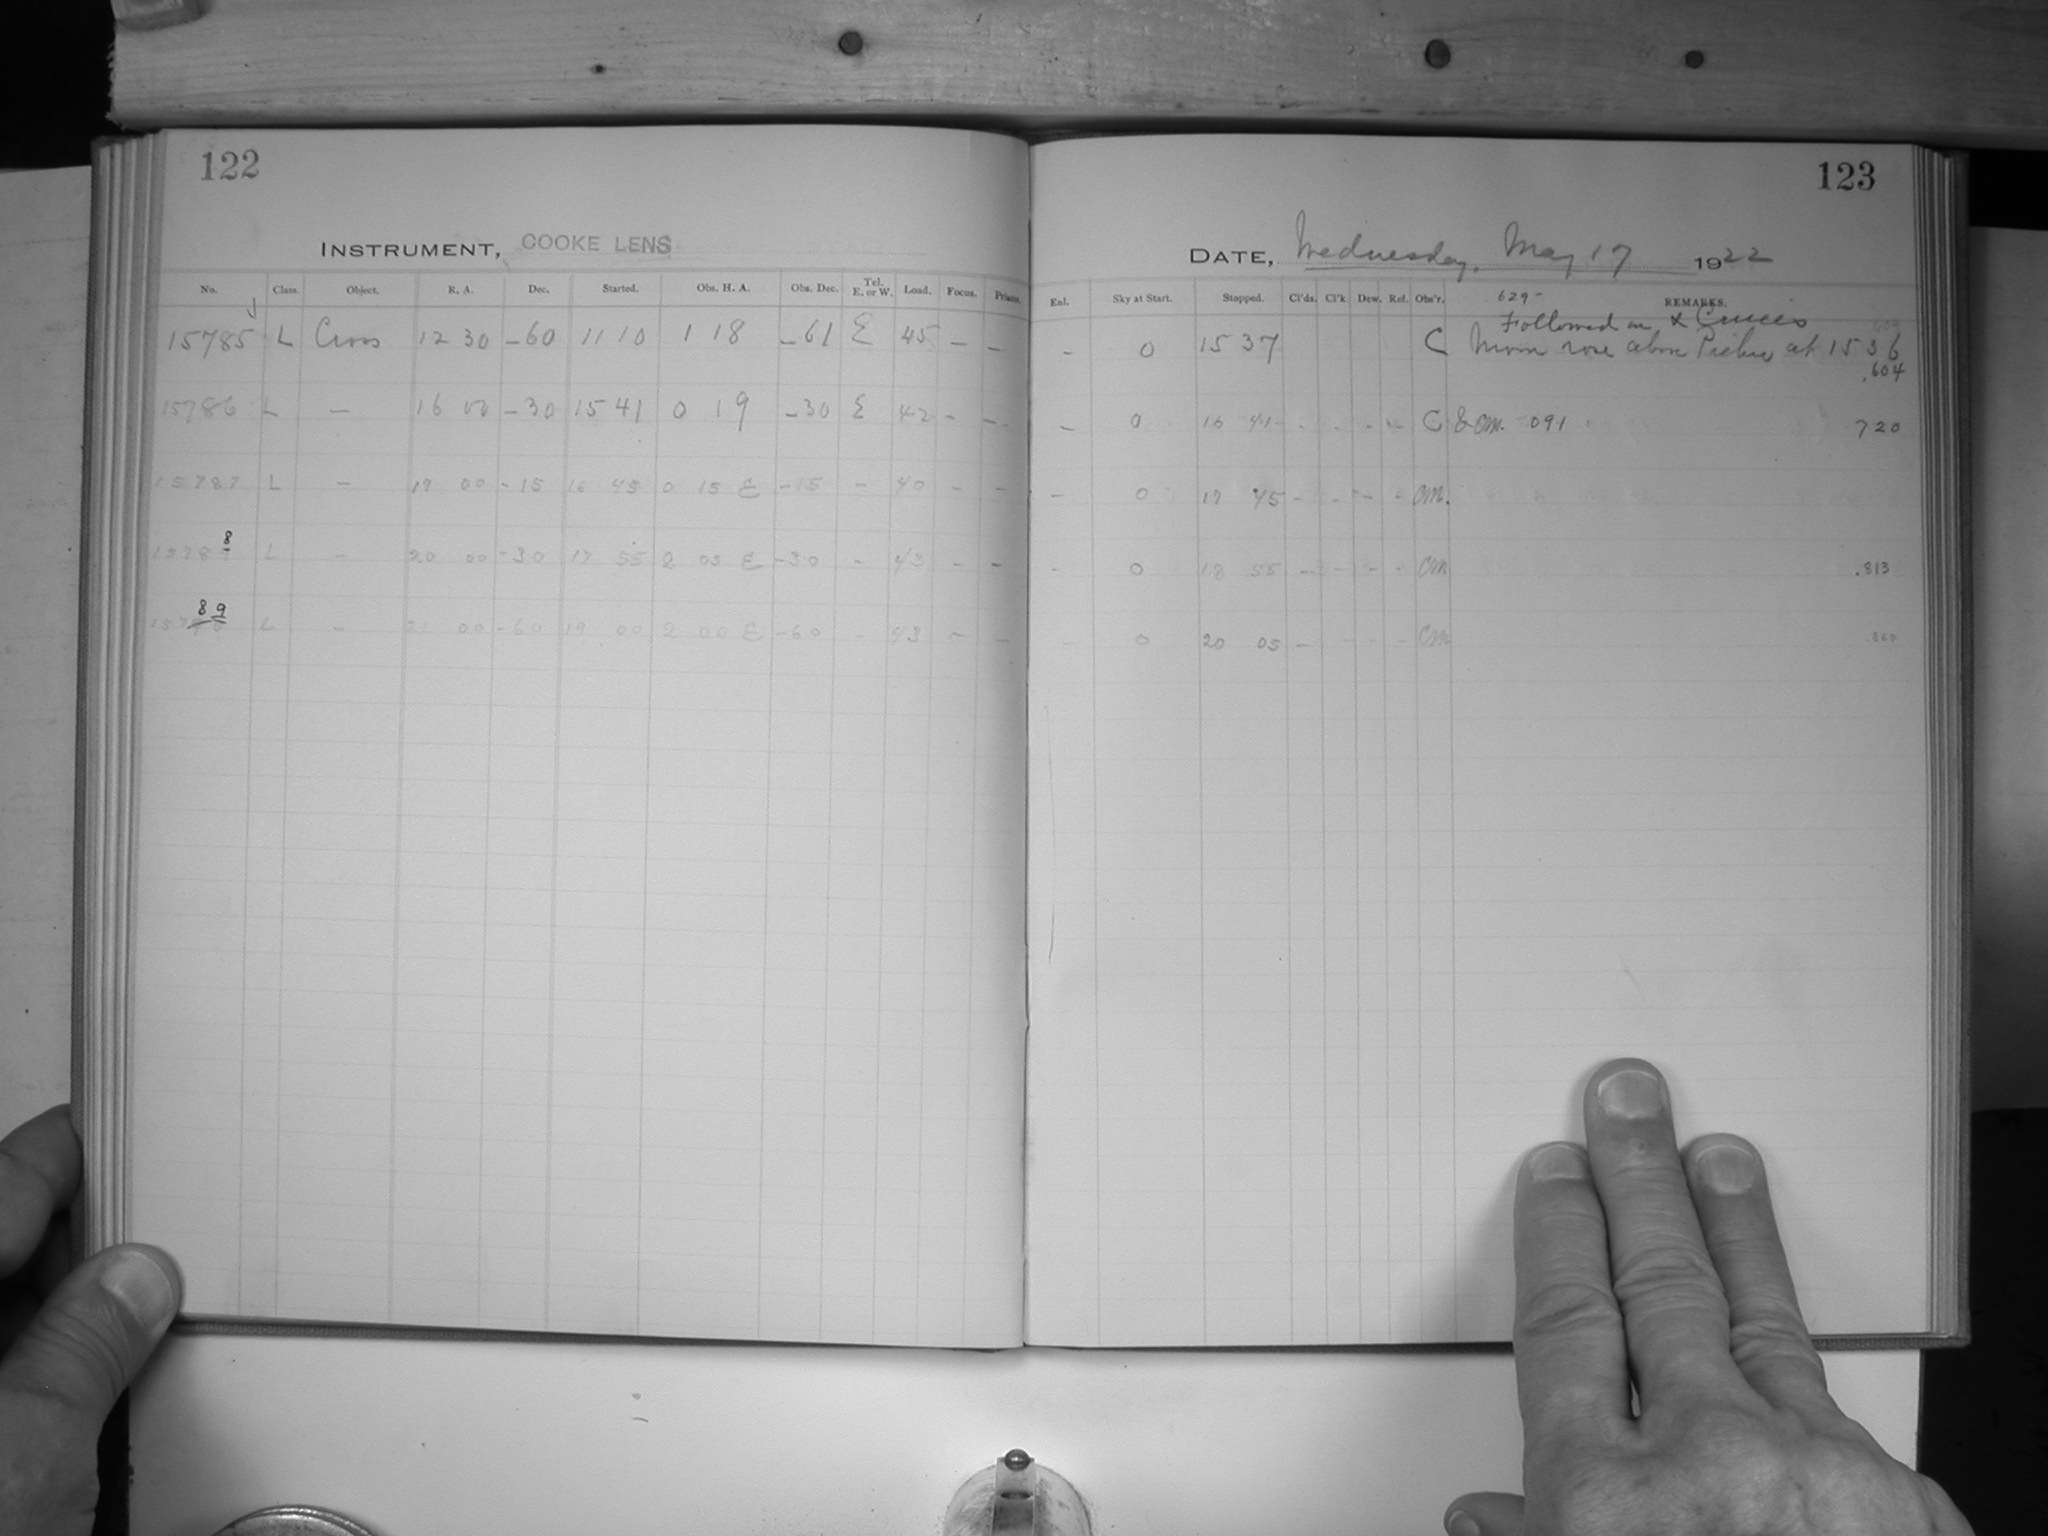 122
INSTRUMENT, COOKE LENS
No. Class. Object. R. A. Dec. Started. Obs. H. A. Obs. Dec. Tel. E. or W. Load. Focus. Prisms.
15785 L Cross 12 30 -60 11 10 1 18 -61 E 45 - -
15786 L - 16 00 -30 15 41 0 19 -30 E 42 - -
15787 L - 17 00 -15 16 45 0 15 E -15 - 40 - -
8
1578 L - 20 00 -30 17 55 2 05 E -30 - 43 - -
8 9
157 L - 21 00 -60 19 00 2 00 E -60 - 43 - -
123
DATE, Wednesday, May 17 1922
Enl. Sky at Start. Stopped. Cl'ds. Cl'k Dew. Rel. Obs'r. REMARKS.
629-
Followed on α Crucis
- 0 15 37 C Moon rose above at 15 36
.604
- 0 16 41 - - - - C & CM. -091 720
- 0 17 45 - - - - CM.
- 0 18 55 - - - - CM .813
- 0 20 05 - - - - CM .860